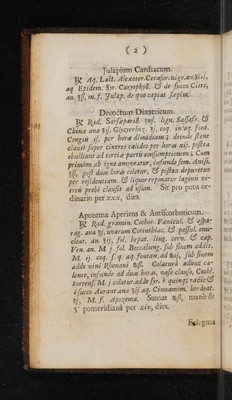 ( 2 )
Julapium Cardiacum.
℞ Aq. Lact. Alexeter. Ceraſor. nigr. an.
aq Epidem. Syr. Caryophyll. & de ſucco Citri,
an. m. f. Julap. de quo capiat ſæpius.
Decoctum Diureticum.
℞ Rad. Sarſaparil. lign. Saſſafr. &
Chinæ ana Glycyrrhiz. coq. in aq. font.
Congiis ij. per horæ dimidium; deinde ſtent
clauſe ſuper cineres calidos per horas xij. poſtea
ebulliant ad tertiæ partis conſumptionem; Cum
primùm ab igne amoveatur, infunde ſem. Aniſi.
poſt duas horas coletur, & poſtea depuretur
per reſidentiam, & liquor reponatur lagenis vi-
treis probè clauſis ad uſum. Sit pro potu or-
dinario per xxx, dies.
Apozema Aperiens & Antiſcorbuticum.
℞ Rad. gramin. Cichor. Fœnicul. & aſpa-
rag. ana uvarum Corinthiac. & paſſul. enu-
cleat. an. fol. hepat. ling. cerv. & cap.
Ven. an. M. j. fol. Beccabung. ſub finem addit.
M. ij. coq. ſ. q. aq. fontan. ad ſub finem
adde vini Rhenani Colaturæ adhuc ca-
lente, infunde ad duas horas, vaſe clauſo, Cochl.
hortenſ. M. j colatur. adde ſyr. è quinq; radic &
è ſucco Aurant. ana aq Cinnamom. hordeat.
M. f. Apozema. Sumat manè &
5ª pomeridianâ per xiv, dies.
Eclegma